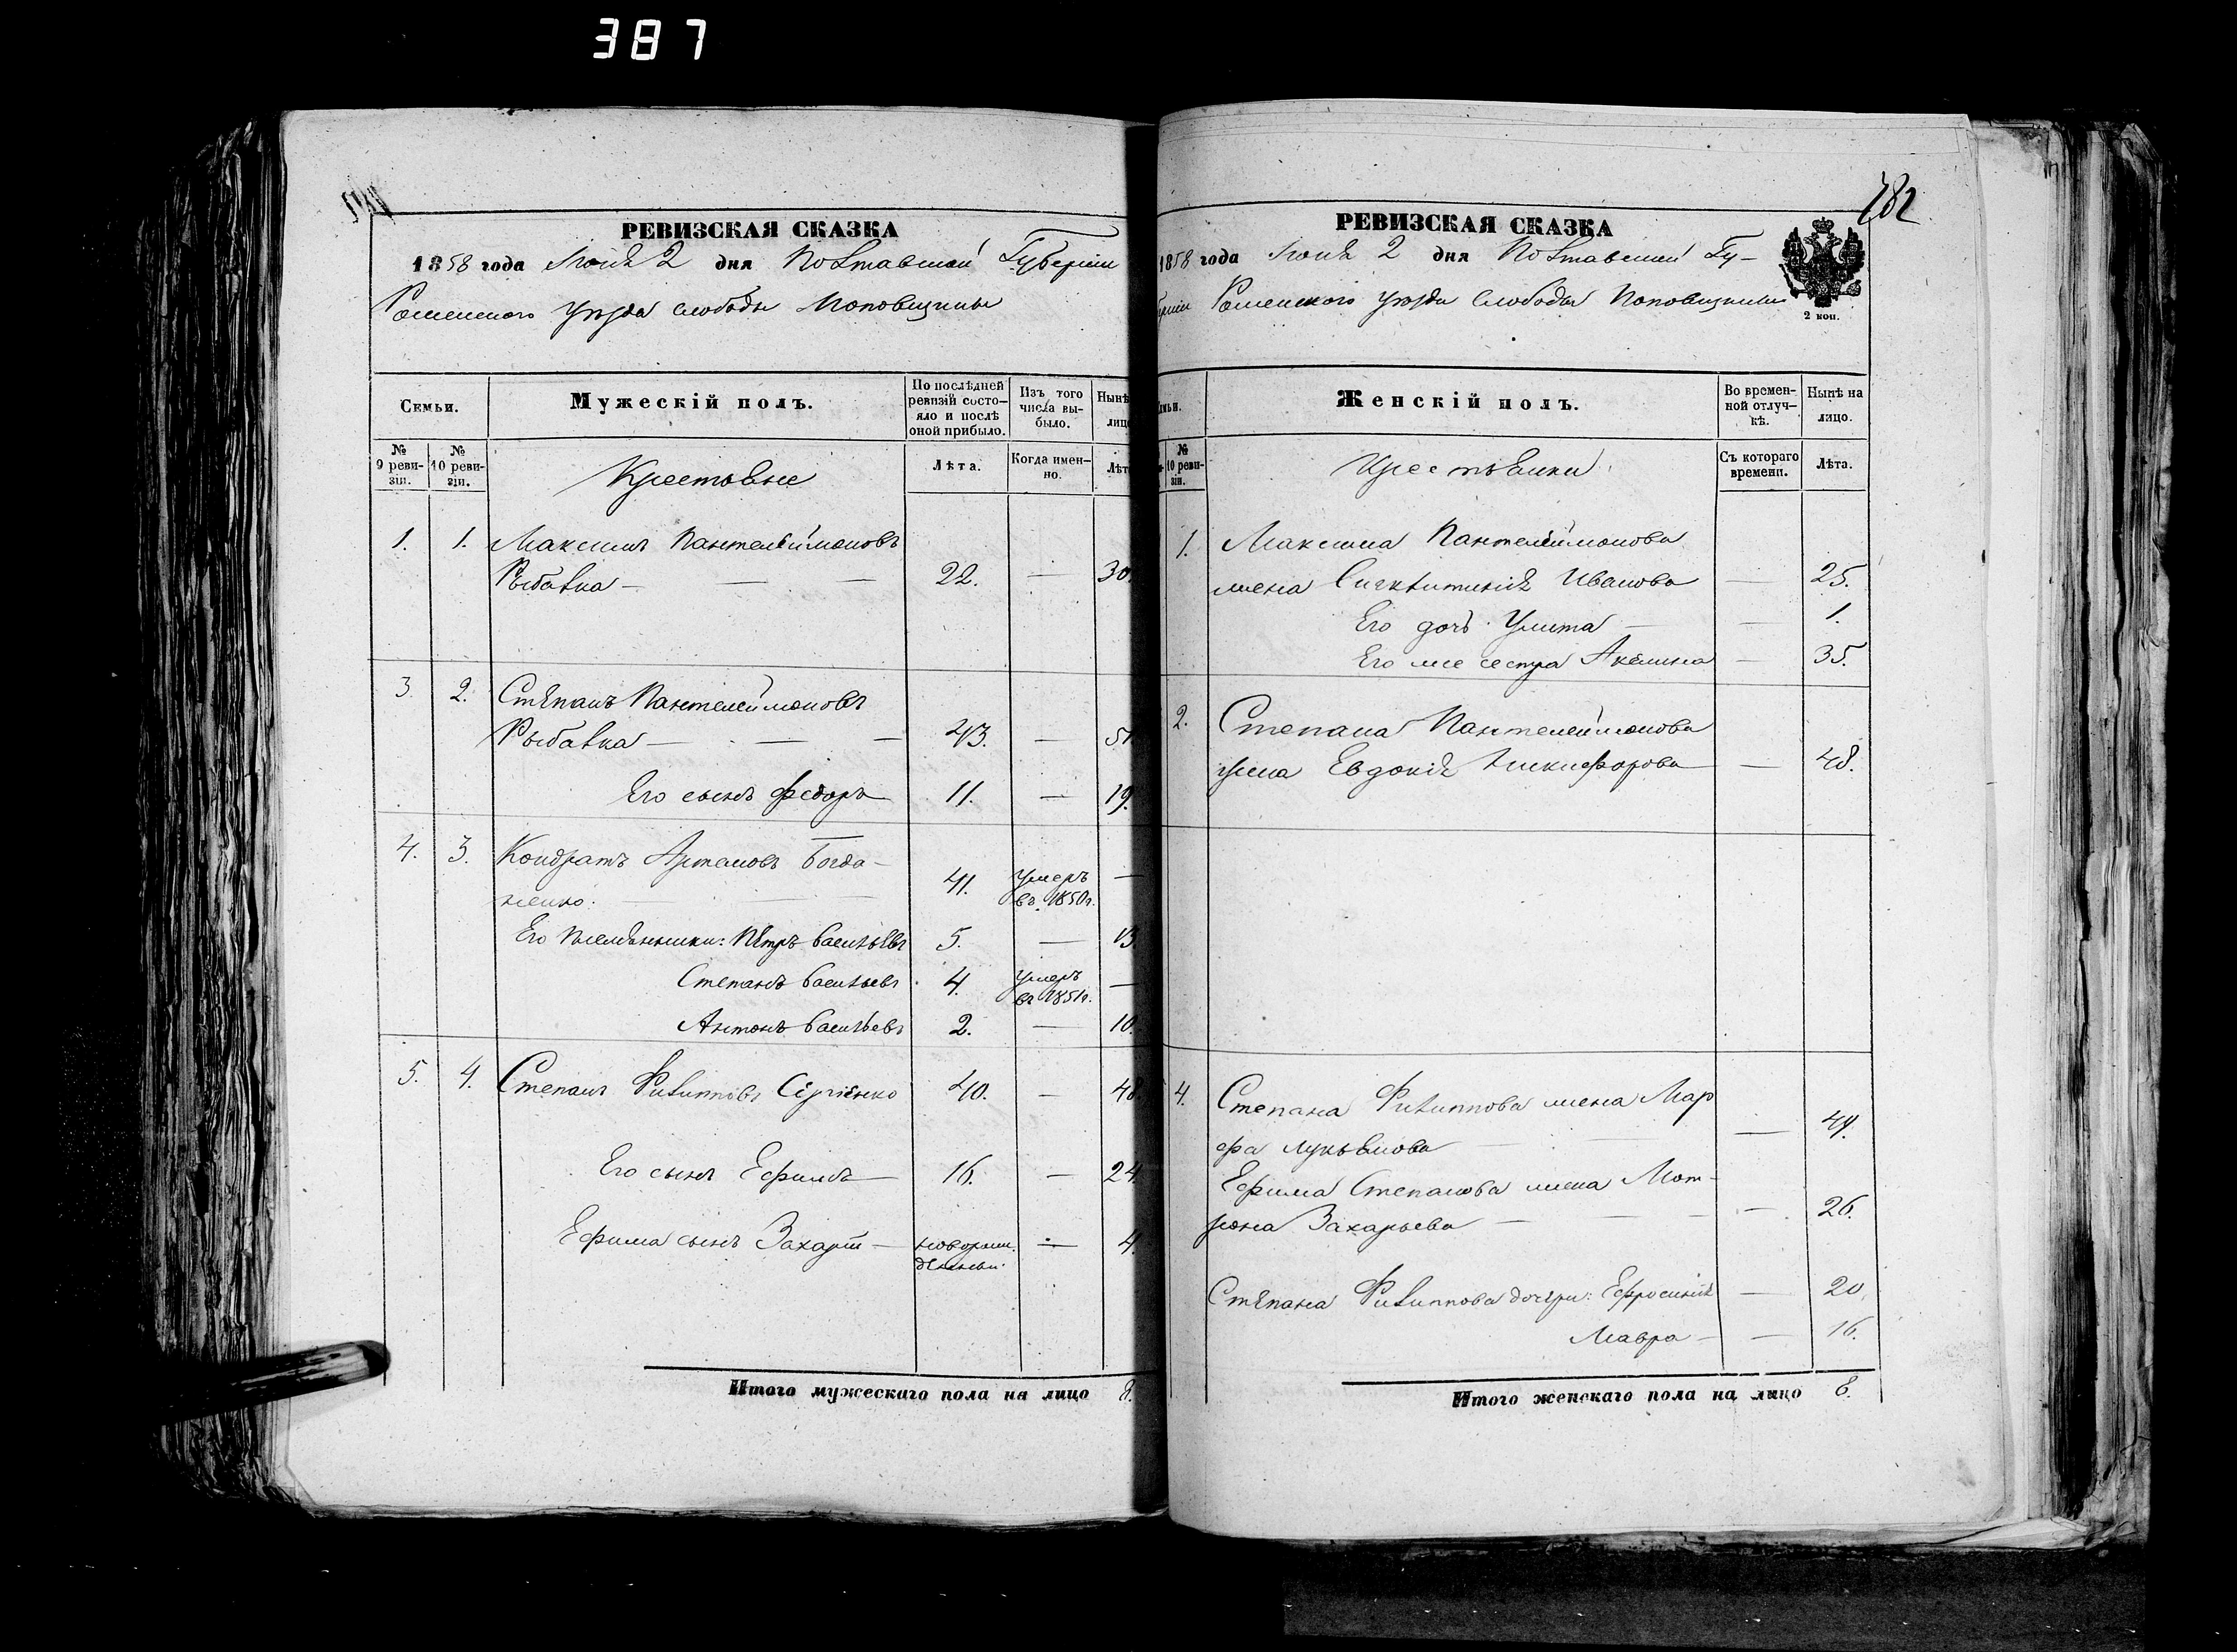 387
РЕВИЗСКАЯ СКАЗКА
1858 года Июня 2 дня Полтавской Губерніи
Роменского уѣзда слободы Поповщины
Семьи.
Мужескій полъ.
По послѣдней ревизій состо-
яло и послѣ
оной прибыло.
Изъ того
числа вы-
было.
Нынѣ
лицо
№
9 реви-
зіи.
№
10 реви-
зіи.
Крестьяне
Лѣта.
Когда имен-
но.
Лѣта
1. 1. Максимъ Пантелеймоновъ
Рыбалка — 22. — 30.
3. 2. Степанъ Пантелеймоновъ
Рыбалка — 43. — 51
Его сынъ Федоръ 11. — 19.
4. 3. Кондратъ Артамовъ Богда-
ненко. 41. умеръ въ 1850г. —
Его племянники: Петръ Васильевъ 5. — 13.
Степанъ Васильевъ 4. умеръ въ 1851г. —
Антонъ Васильевъ 2. — 10.
5. 4. Степанъ Филипповъ Сергіенко 40. — 48.
Его сынъ Ефимъ 16. — 24.
Ефима сынъ Захарій — новорож-
денный. — 4.
Итого мужескаго пола на лицо 8.
782
РЕВИЗСКАЯ СКАЗКА
1858 года Июня 2 дня Полтавской Гу-
берніи Роменского уѣзда слободы Поповщины
2 коп.
Семьи.
Женскій полъ.
Во времен-
ной отлуч-
кѣ.
Нынѣ на
лицо.
№
10 реви-
зіи.
Крестьянки
Съ котораго
времени.
Лѣта.
1. Максима Пантелеймонова
жена Иванова — 25.
Его дочь Улита — 1.
Его же сестра Акелина — 35.
2. Степана Пантелеймонова
жена Евдокія Никифорова — 48.
4. Степана Филиппова жена Мар
фа Лукьянова — 49.
Ефима Степанова жена Мот-
рона Захарьева — 26.
Степана Филиппова дочери: Ефросинія — 20.
Мавра — 16.
Итого женскаго пола на лицо 8.